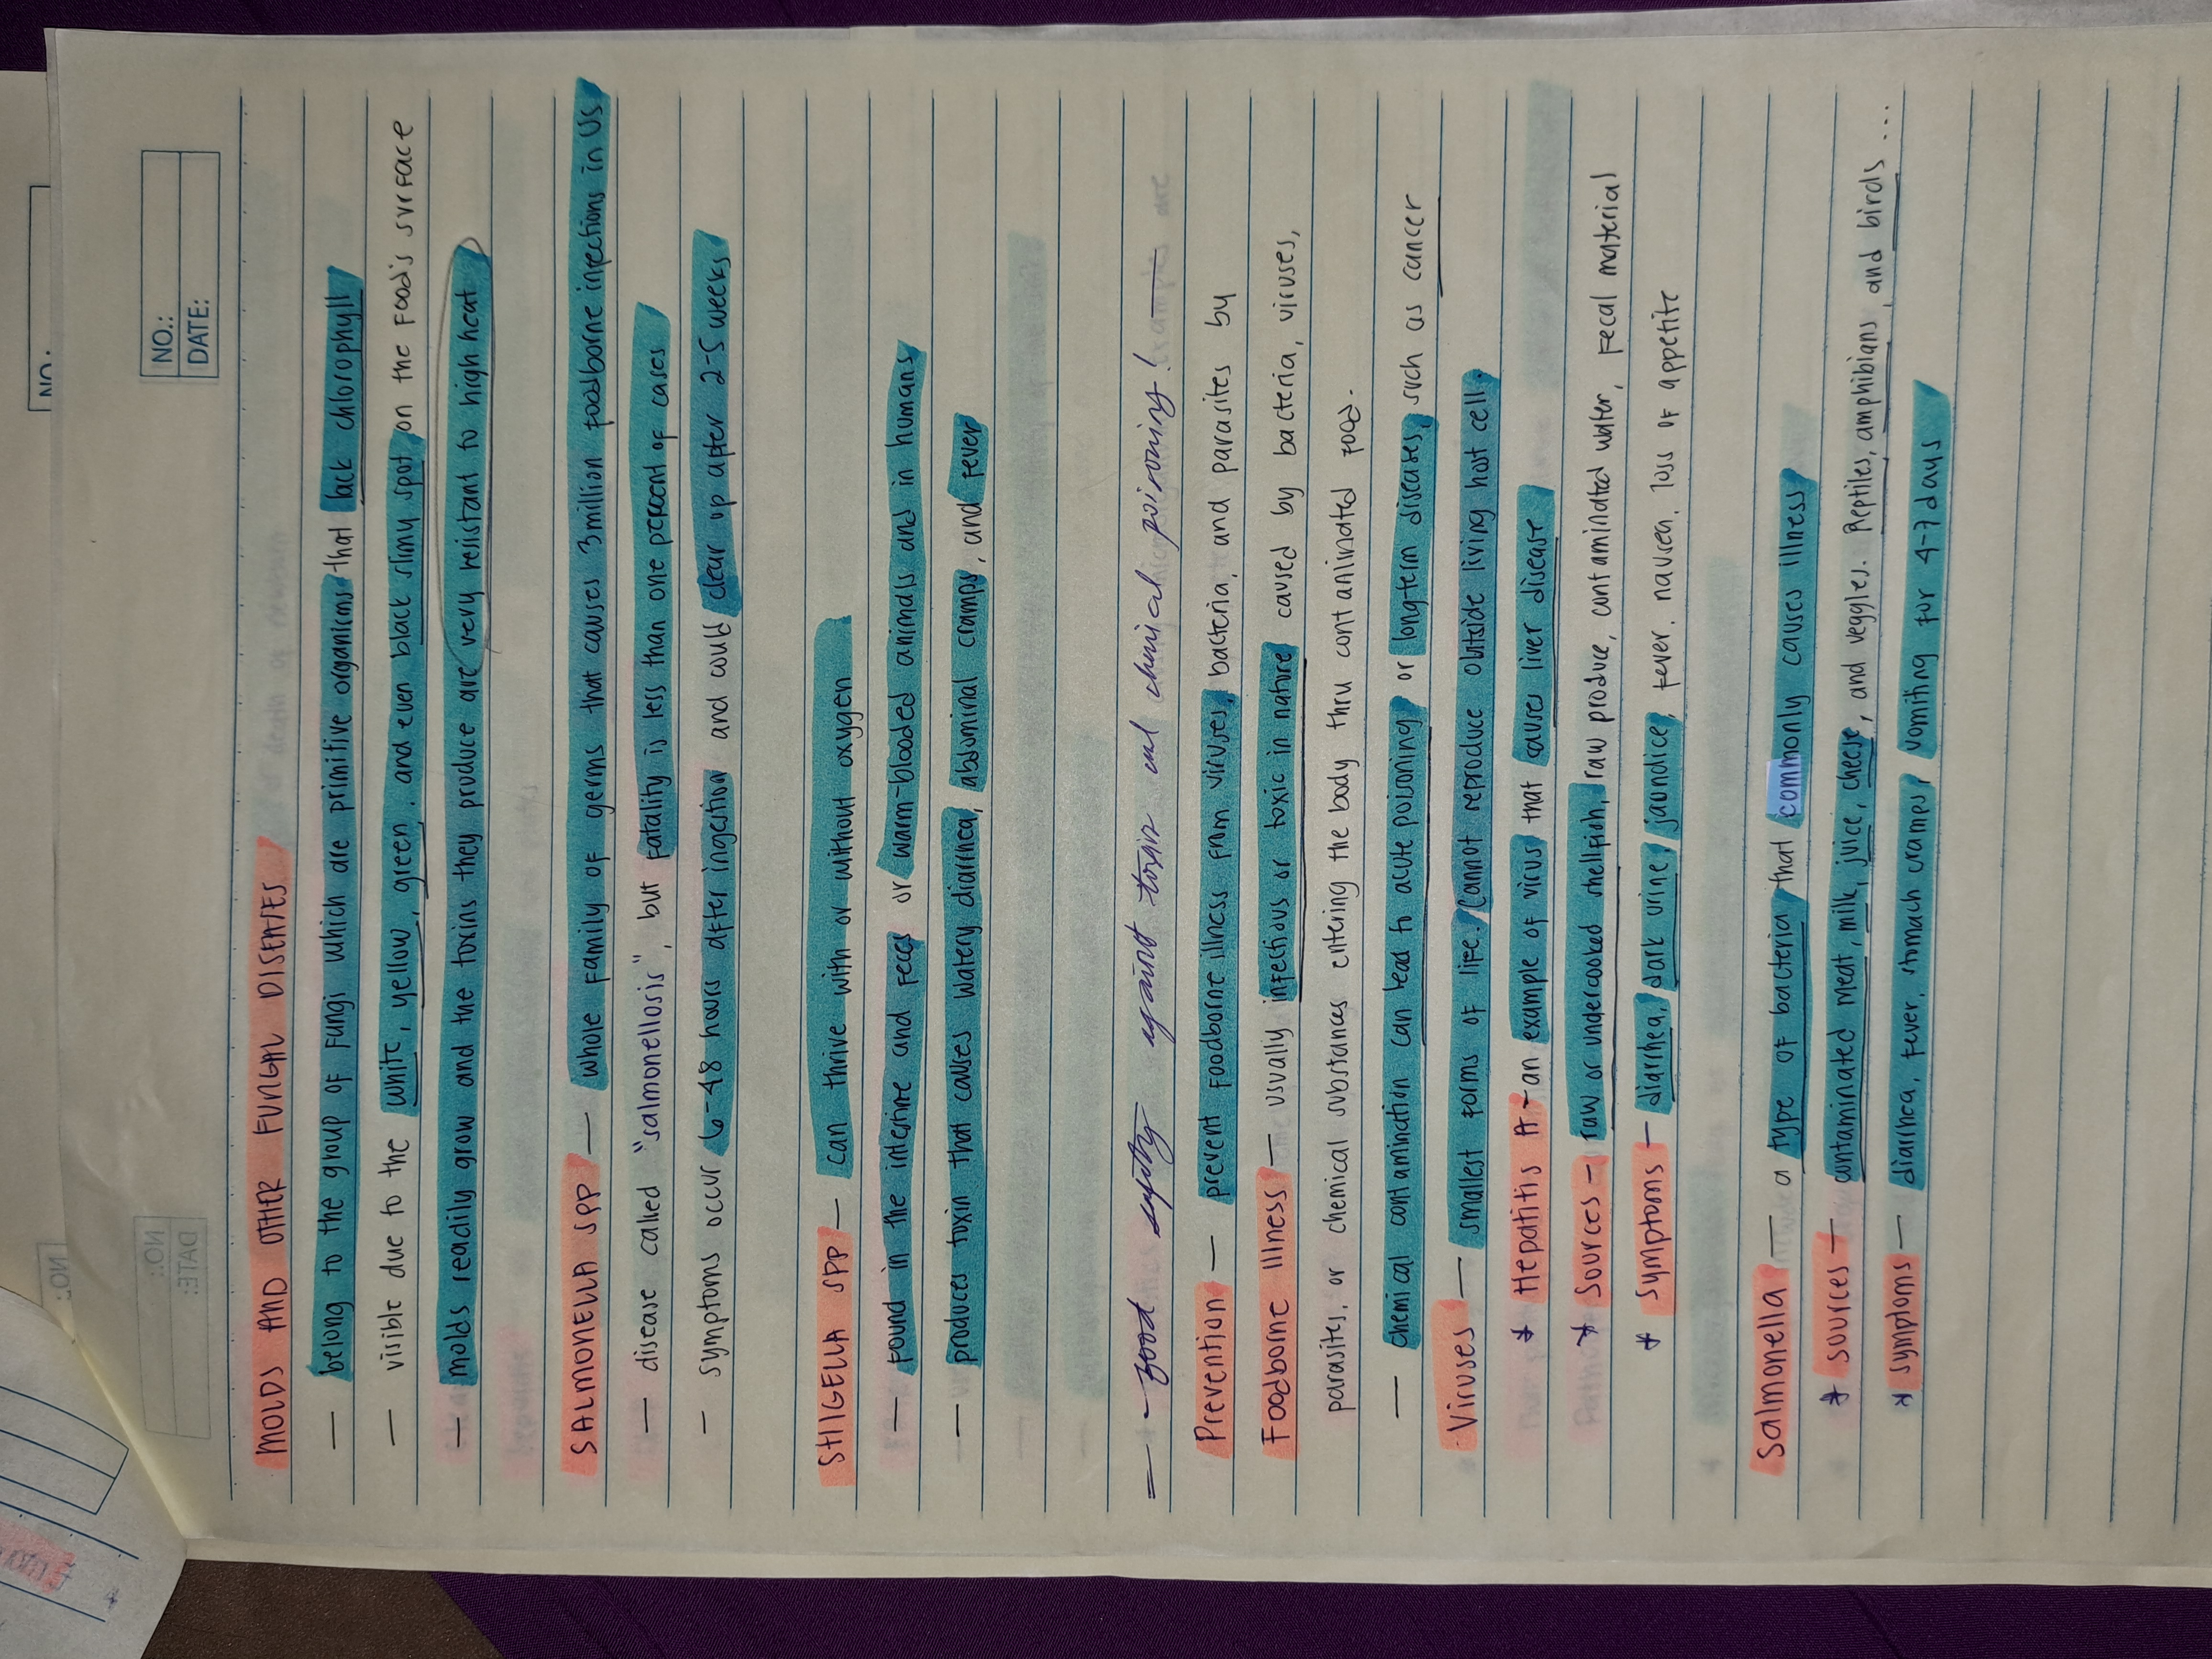 NO.:
NO.:
DATE:
MOLDS AND OTHER FUNGAL DISEASES
— belong to the group of fungi which are primitive organisms that lack chlorophyll
— visible due to the white, yellow, green, and even black slimy spot on the food's surface
— molds readily grow and the toxins they produce are very resistant to high heat
SALMONELLA SPP — whole family of germs that causes 3million foodborne infections in US
— disease called "salmonellosis", but fatality is less than one percent of cases
— symptoms occur 6-48 hours after ingestion and could clear up after 2-5 weeks
SHIGELLA SPP — can thrive with or without oxygen
— found in the intestine and feces or warm-blooded animals and in humans
— produces toxin that causes watery diarrhea, abdominal cramps, and fever
= - food safety against toxin and chemical poisoning! —
Prevention — prevent foodborne illness from viruses, bacteria, and parasites by
Foodborne Illness — usually infectious or toxic in nature caused by bacteria, viruses,
parasites, or chemical substances entering the body thru contanlinated food.
— chemical contamination can lead to acute poisoning or long-term diseases, such as cancer
Viruses — smallest forms of life. Cannot reproduce outside living host cell.
* Hepatitis A - an example of virus that causes liver disease
* Sources — raw or undercooked shellfish, raw produce, contaminated water, fecal material
* Symptoms — diarrhea, dark urine, jaundice, fever, nausea, loss of appetite
Salmonella — a type of bacteria that commonly causes illness
* sources — contaminated meat, milk, juice, cheese, and veggles. Reptiles, amphibians, and birds ...
* symptoms — diarrhea, fever, stomach cramps, vomiting for 4-7 days